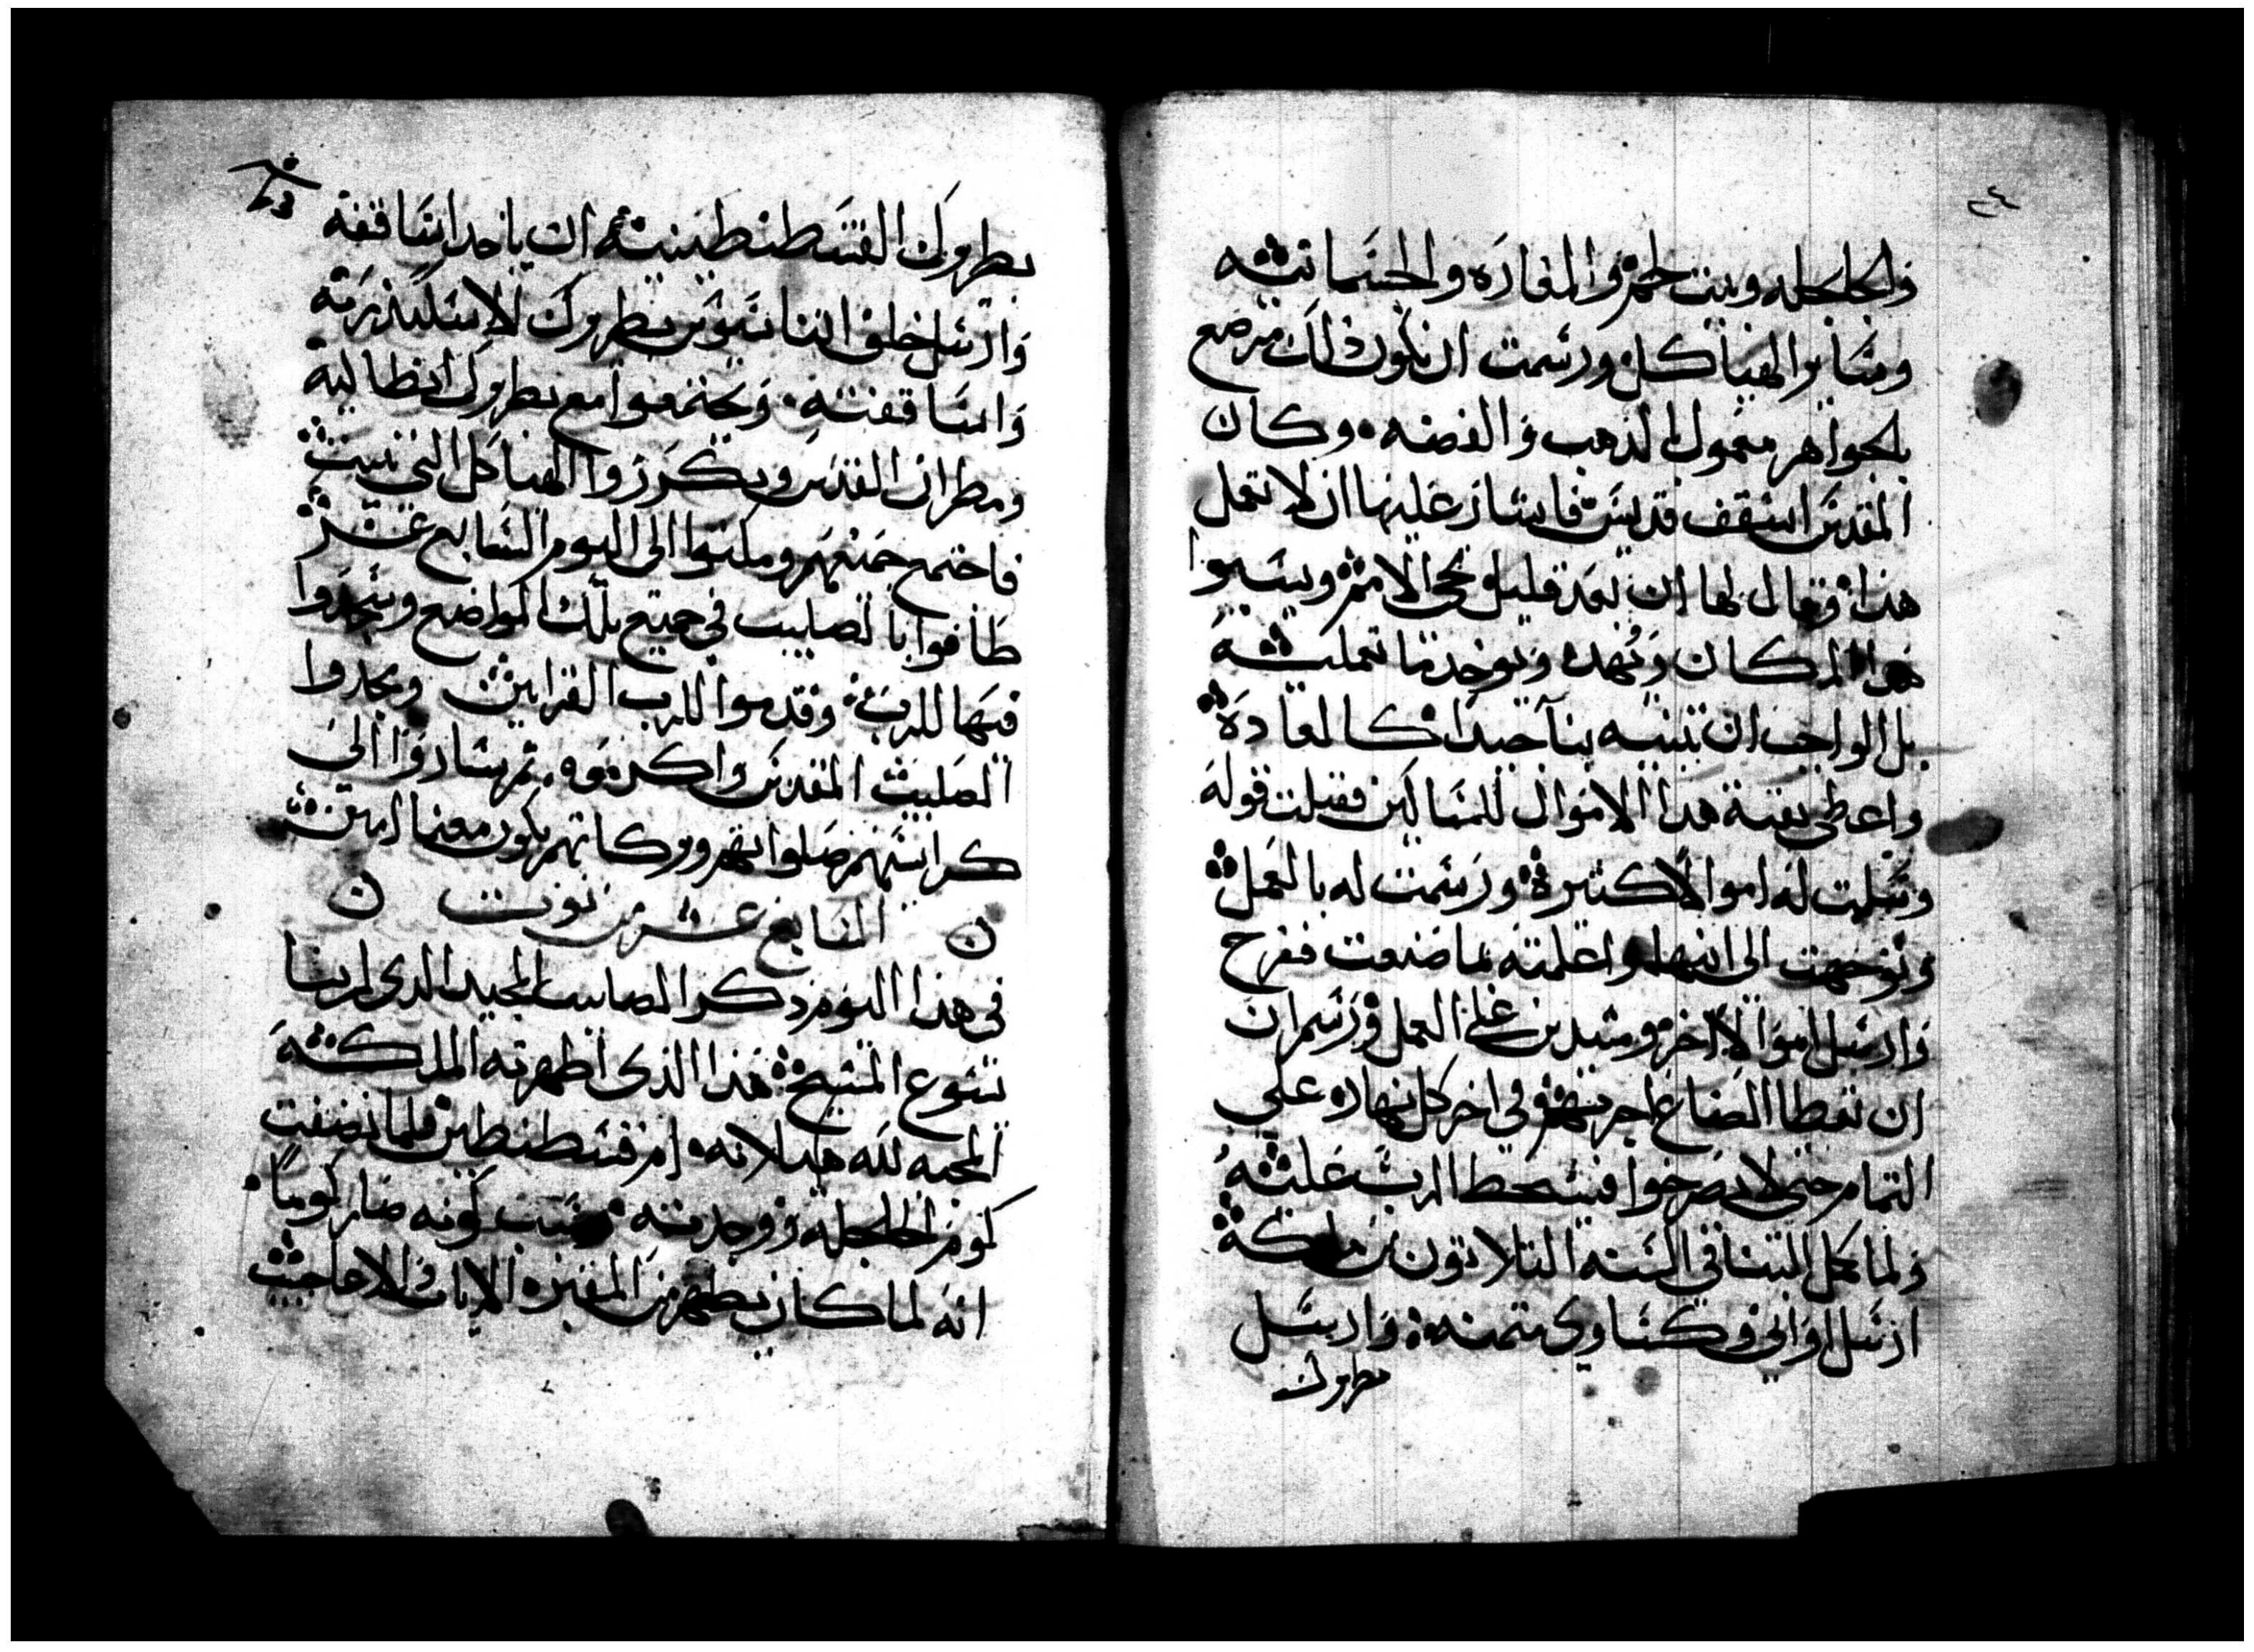 ٢٤
والجلجله وبيت لحم والمغاره والجسمانيه
وساير الهياكل ورسمت ان تكون ذلك مرصع
بالجواهر معمول بالدهب والفضه وكان
المقدس اسقف قديس فاشار عليها ان لا تعمل
هذا وقال لها ان بعد قليل تجى الامم ويسبوا
هدا المكان ويهدم ويوخد ما تعمليه
بل الواجب ان تبنيه بنا جيدا كالعاده
واعطى بقية هدا الاموال للمساكين فقبلت قوله
وسلمت له اموالا كتيره ورسمت له بالعمل
وتوجهت الى ابنها واعلمته بما صنعت ففرح
وارسل اموالا اخر ومشدين على العمل ورسم ان
ان تعطا الصناع اجرتهم في اخر كل نهار على
التمام حتى لا يصرخوا فيسخط الرب عليه
ولما كمل البنا في السنه التلاتون من ملكه
ارسل اواني وكساوي متمنه وارسل
بطروك
بطروك القسطنطينيه ان ياخد اساقفة
وارسل خلف اتناسيوس بطروك الاسكندريه
واساقفته ويجتمعوا مع بطروك انطاكيه
ومطران القدس ويكرزوا الهياكل التي بنيت
فاجتمع جميعهم ومكتوا الى اليوم السابع عشر
طافوا بالصليب في جميع تلك المواضع وسجدوا
فيها للرب وقدموا للرب القرابين ومجدوا
الصليب المقدس واكرموه ثم ساروا الى
كراسيهم صلواتهم وبركاتهم تكون معنا امين
السابع عشر من توت
في هذا اليوم ذكر الصليب المجيد الدى لربنا
يسوع المسيح هذا الذى اظهرته الملكه
المحبه لله هيلانه ام قسطنطين فلما نضفت
كوم الجلجله ووجدته وسبب كونه صار كوما
انه لما كان يظهر من المقبره الايات والاعاجيب